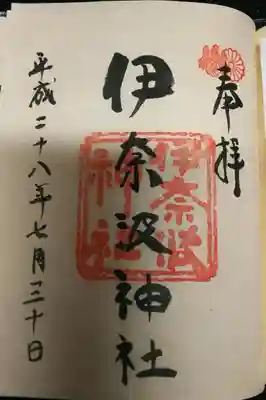 奉拝
伊奈波神社
伊奈波
神社
平成二十八年七月三十日